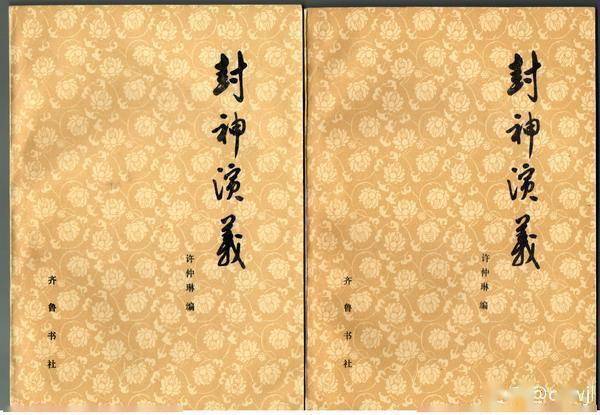 封神演義
许仲琳 编
齐鲁书社
封神演義
许仲琳 编
齐鲁书社